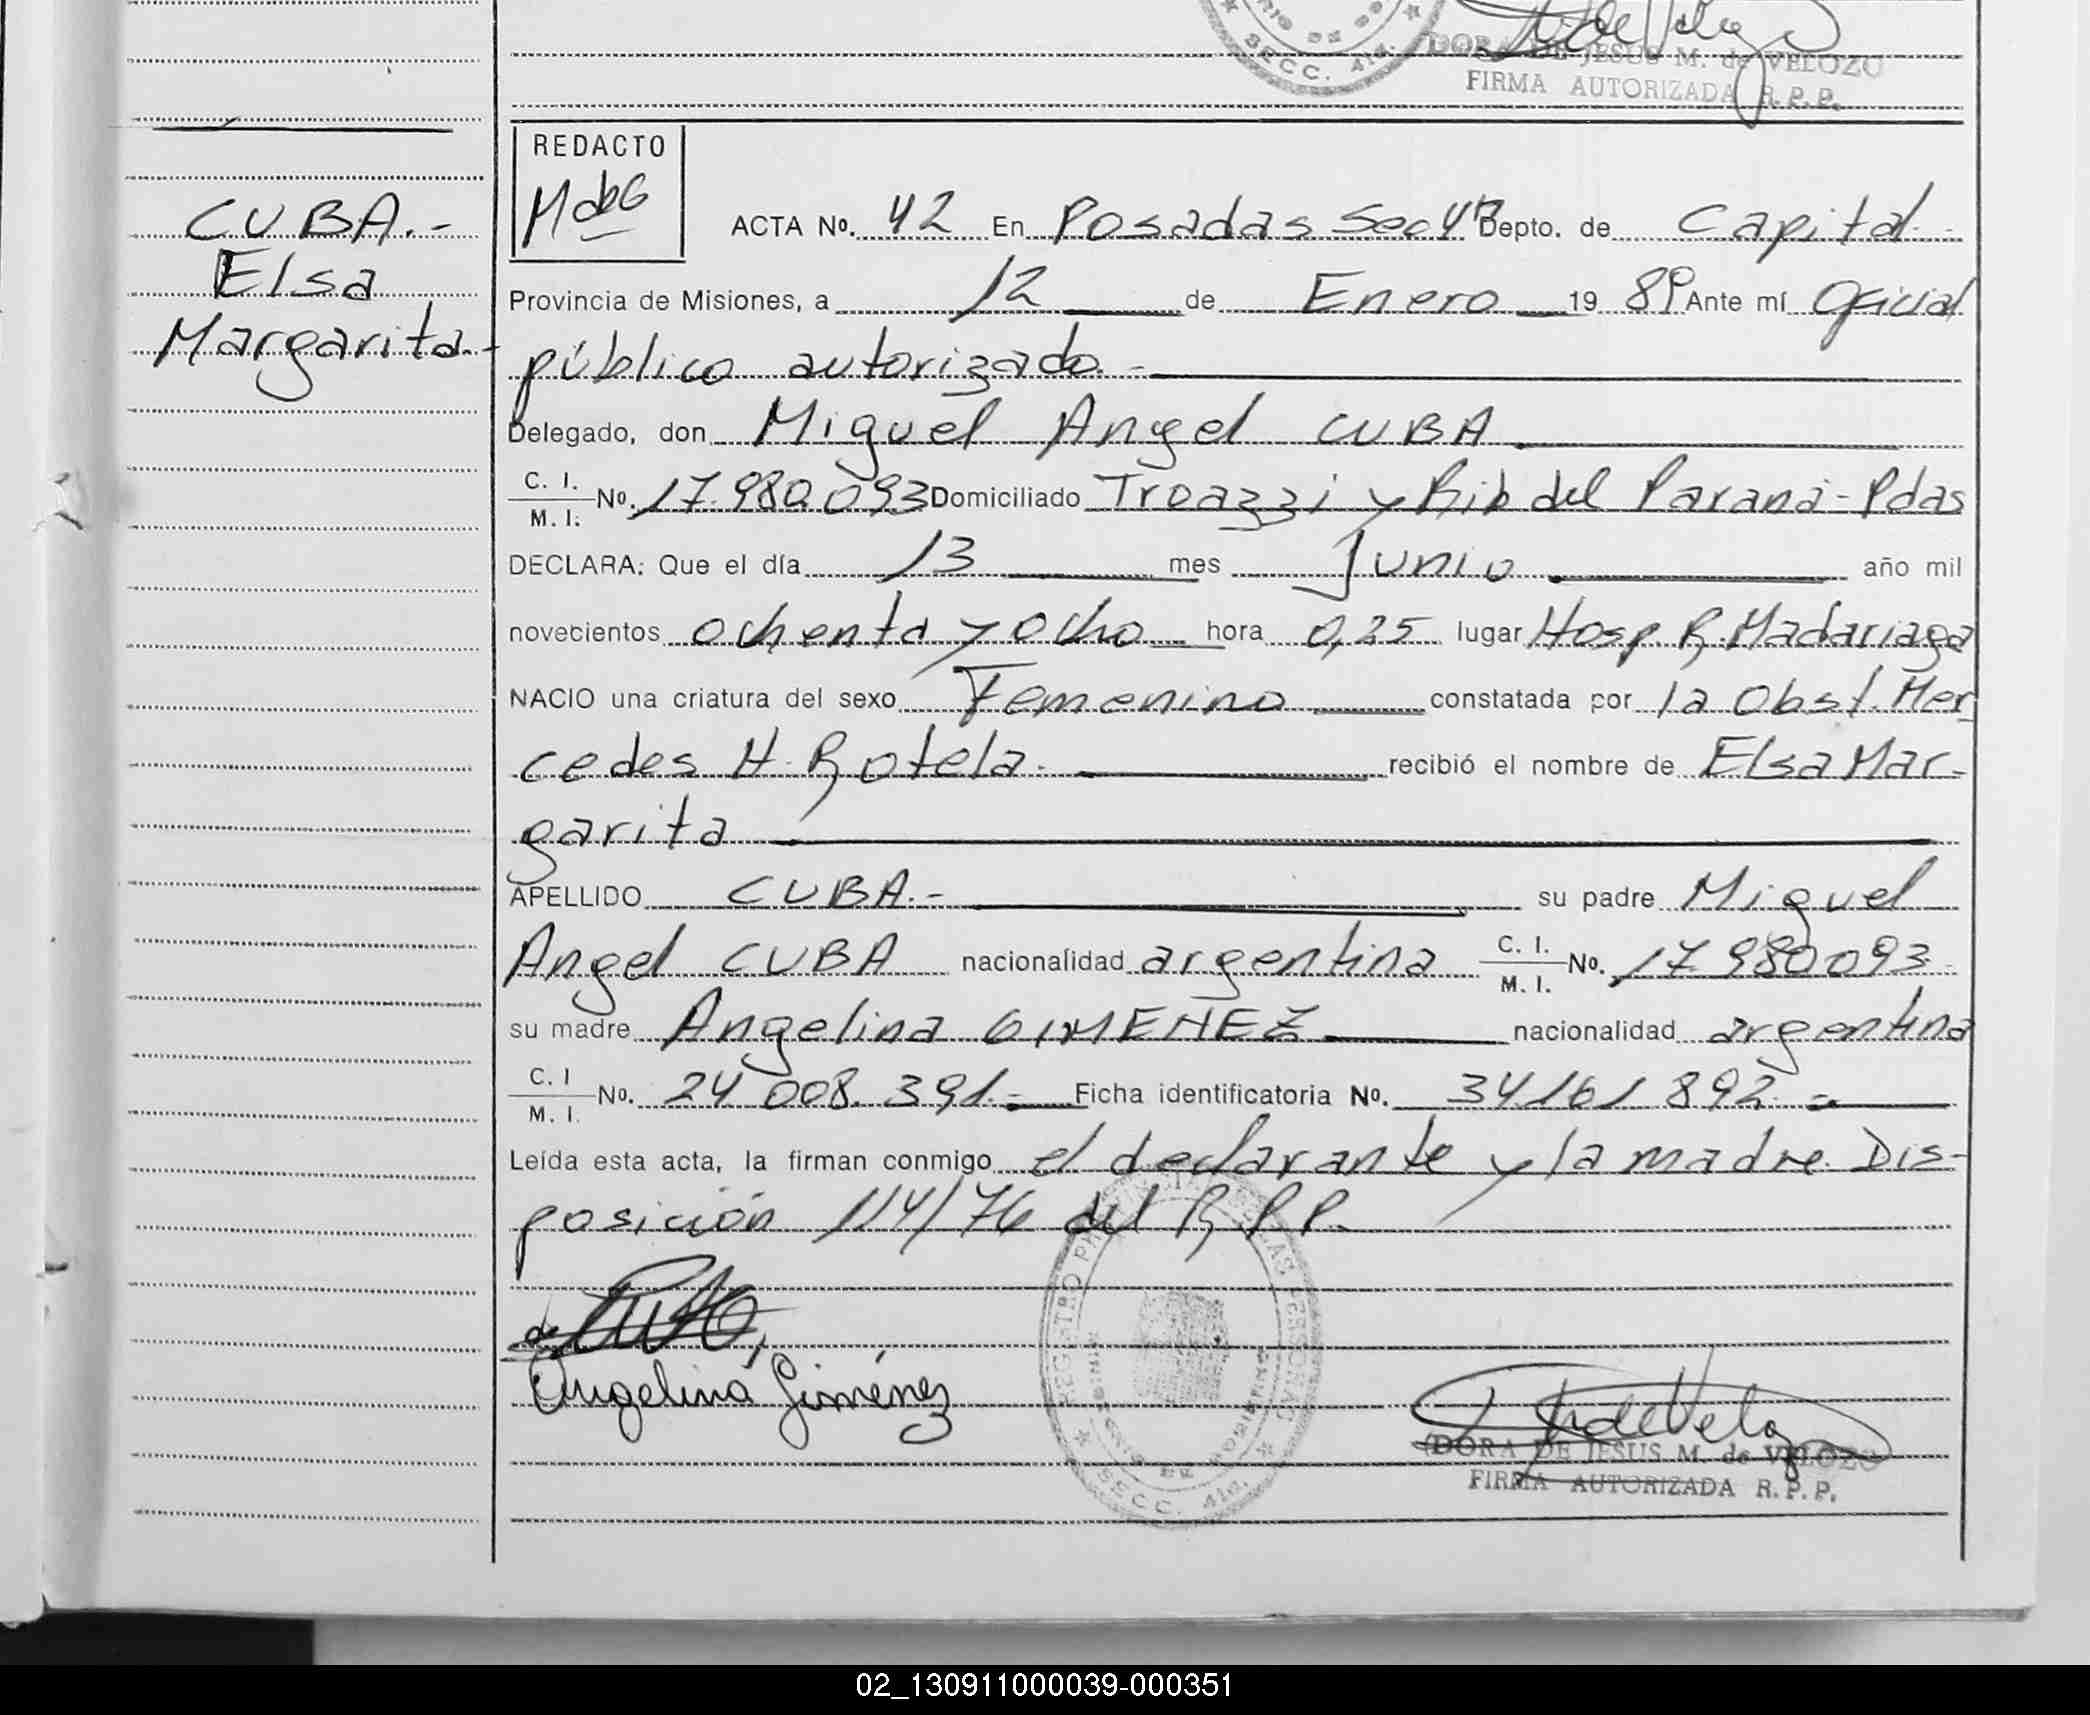 DORA DE JESUS M. de VELOZO
FIRMA AUTORIZADA R.P.P.
SECC. 4ta.
REDACTO
MdeG
CUBA.-
Elsa
Margarita.-
ACTA No. 42 En Posadas Sec 4ª Depto. de Capital.-
Provincia de Misiones, a 12 de Enero 19 89 Ante mí Oficial
público autorizado.-
Delegado, don Miguel Angel CUBA
C. I. M. I. No. 17.980.093 Domiciliado Troazzi y Rib del Paraná-Pdas
DECLARA: Que el día 13 mes Junio año mil
novecientos ochenta y ocho hora 0,25 lugar Hosp. R. Madariaga
NACIO una criatura del sexo Femenino constatada por la Obst. Mer
cedes H. Rotela. recibió el nombre de Elsa Mar-
garita
APELLIDO CUBA.- su padre Miguel
Angel CUBA nacionalidad argentina C. I. M. I. No. 17.980093-
su madre Angelina GIMENEZ nacionalidad argentina
C. I M. I. No. 24 008. 391.- Ficha identificatoria No. 34161892.-
Leída esta acta, la firman conmigo el declarante y la madre. Dis-
posición 114/76 del R.P.P.
Angelina Giménez
REGISTRO PROVINCIAL DE LAS PERSONAS
SECC. 4ta.
DORA DE JESUS M. de VELOZO
FIRMA AUTORIZADA R.P.P.
02_130911000039-000351